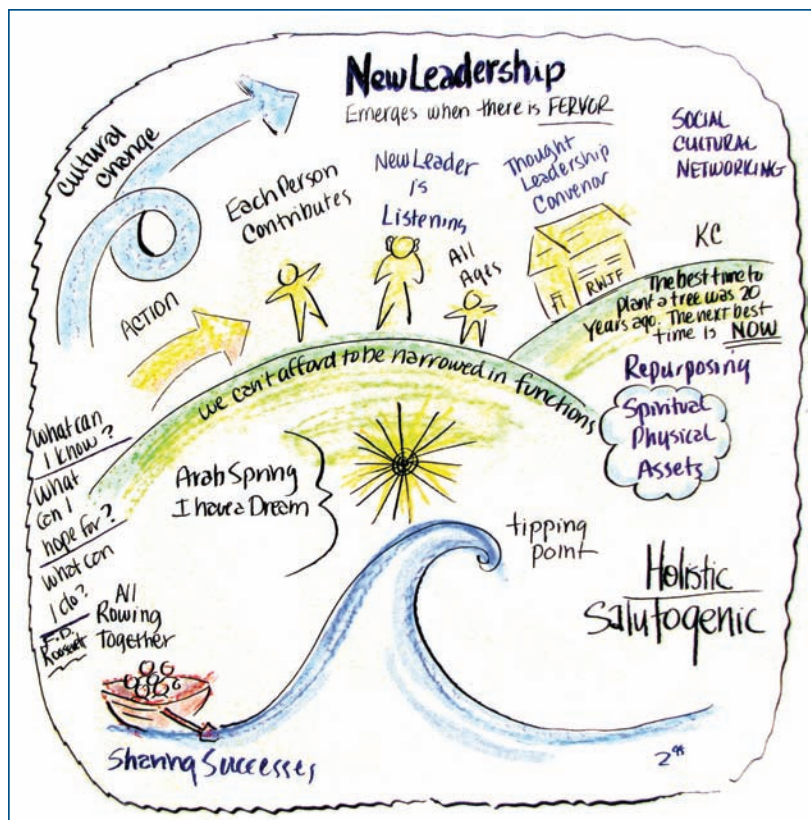 New Leadership
Emerges when there is FERVOR
SOCIAL
CULTURAL
NETWORKING
Cultural
Change
Each Person
Contributes
New Leader
is
Listening
All
Ages
Thought
Leadership
Convenor
RWJF
KC
The best time to
plant a tree was 20
years ago. The next best
time is NOW
ACTION
we can't afford to be narrowed in functions
Repurposing
Spiritual
Physical
Assets
What can
I know?
What
can I
hope for?
What can
I do?
F.D.
Roosevelt
Arab Spring
I have a Dream
tipping
point
Holistic
Salutogenic
All
Rowing
Together
Sharing Successes